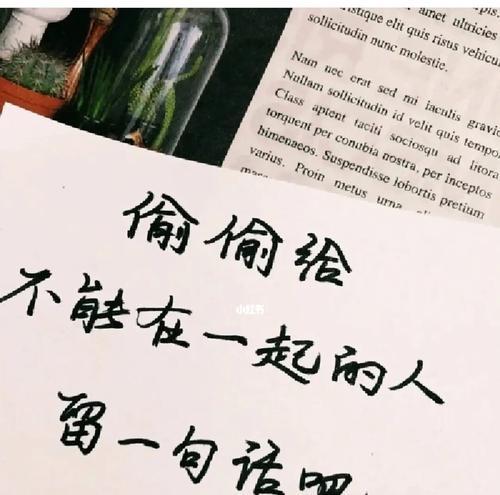 amet ultricies
elit quis risus vehicul
sollicitudin nunc molestie.
Nam nec erat sed mi iaculis gravi
Nullam sollicitudin id velit quis tempo
Class aptent taciti sociosqu ad litora
torquent per conubia nostra, per inceptos
himenaeos. Suspendisse lobortis pretium
varius. Proin metus urna
偷偷给
小红书
不能在一起的人
留一句话吧